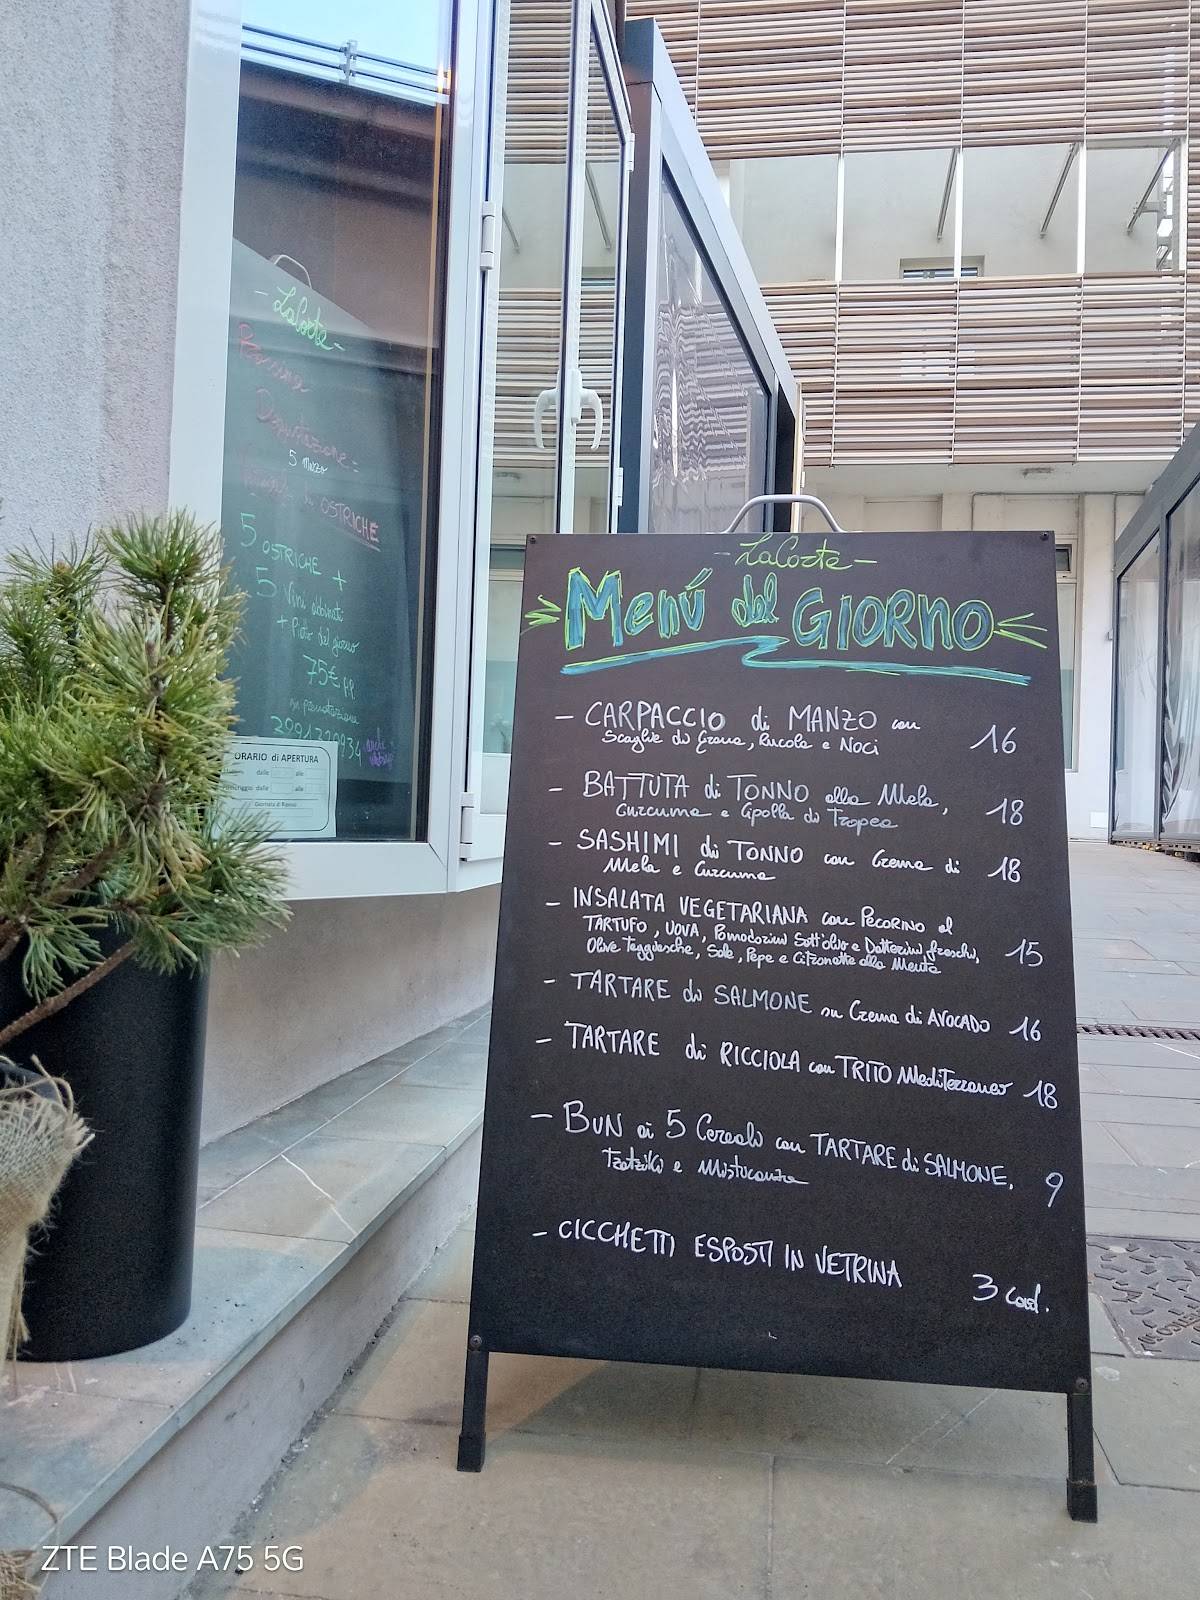 - LaCorte -
Degustazione:
5 Marzo
OSTRICHE
5 OSTRICHE +
5 Vini abbinati
+ Piatto del giorno
75€
su prenotazione
ORARIO di APERTURA
dalle alle
dalle alle
- LaCorte -
Menú del GIORNO
- CARPACCIO di MANZO con 16
Scaglie di Grana, Rucola e Noci
- BATTUTA di TONNO alla Mela, 18
Curcuma e Cipolla di Tropea
- SASHIMI di TONNO con Crema di 18
Mela e Curcuma
- INSALATA VEGETARIANA con PECORINO al
TARTUFO, UOVA, Pomodorini Sott'olio e Datterini freschi, 15
Olive Taggiasche, Sale, Pepe e Citronette alla Menta
- TARTARE di SALMONE su Crema di AVOCADO 16
- TARTARE di RICCIOLA con TRITO Mediterraneo 18
- BUN ai 5 Cereali con TARTARE di SALMONE, 9
Tzatziki e Misticanza
- CICCHETTI ESPOSTI IN VETRINA 3 cad.
ZTE Blade A75 5G